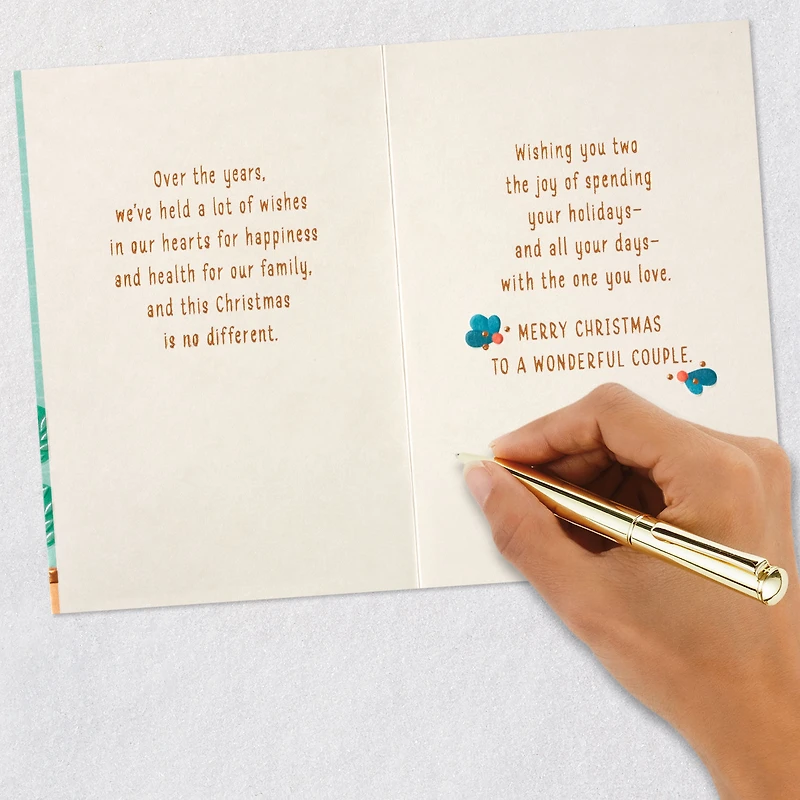 Over the years,
we've held a lot of wishes
in our hearts for happiness
and health for our family,
and this Christmas
is no different.
Wishing you two
the joy of spending
your holidays–
and all your days–
with the one you love.
MERRY CHRISTMAS
TO A WONDERFUL COUPLE.